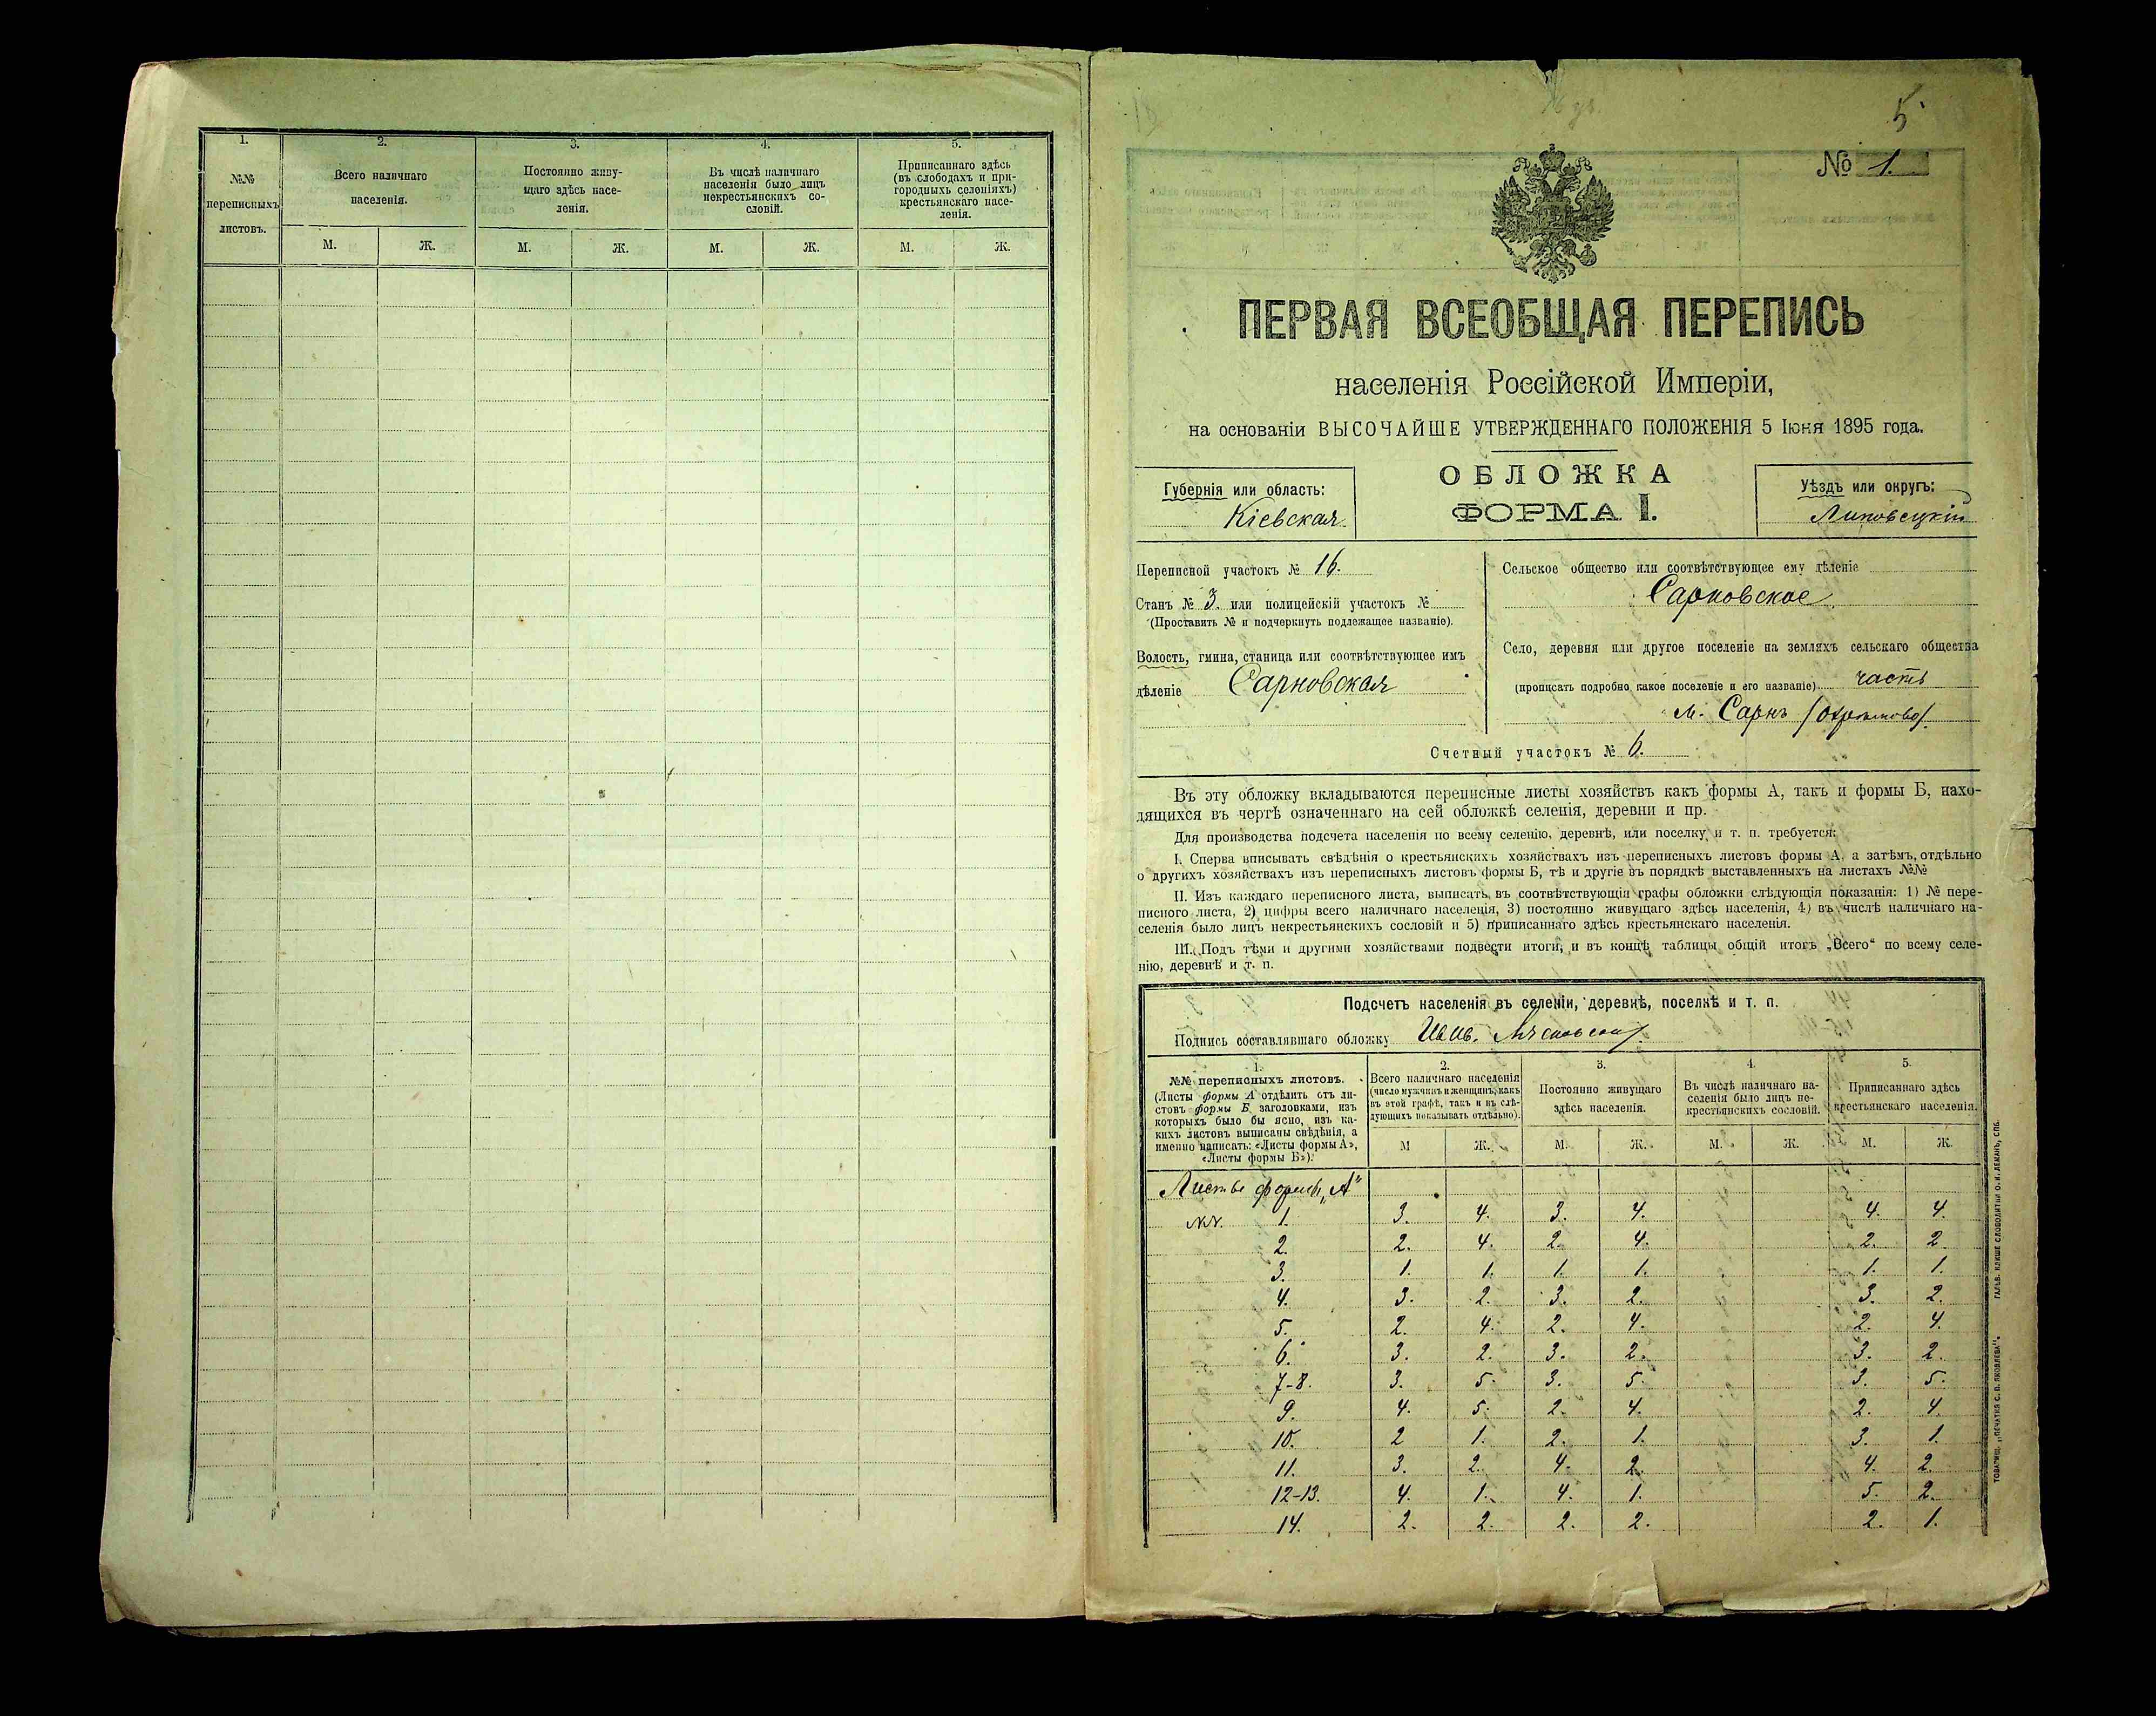 1.
2.
3.
4.
5.
№№
переписныхъ
листовъ.
Всего наличнаго
населенія.
Постоянно живу-
щаго здѣсь насе-
ленія.
Въ числѣ наличнаго
населенія было лицъ
некрестьянскихъ со-
словій.
Приписаннаго здѣсь
(въ слободахъ и при-
городныхъ селеніяхъ)
крестьянскаго насе-
ленія.
М. Ж. М. Ж. М. Ж. М. Ж.
5.
№ 1.
ПЕРВАЯ ВСЕОБЩАЯ ПЕРЕПИСЬ
населенія Россійской Имперіи,
на основаніи ВЫСОЧАЙШЕ УТВЕРЖДЕННАГО ПОЛОЖЕНІЯ 5 Іюня 1895 года.
Губернія или область:
Кіевская
ОБЛОЖКА
ФОРМА I.
Уѣздъ или округъ:
Липовецкій
Переписной участокъ № 16.
Станъ № 3. или полицейскій участокъ №
(Проставить № и подчеркнуть подлежащее названіе).
Волость, гмина, станица или соотвѣтствующее имъ
дѣленіе Сарновская
Сельское общество или соотвѣтствующее ему дѣленіе
Сарновское
Село, деревня или другое поселеніе на земляхъ сельскаго общества
(прописать подробно какое поселеніе и его названіе) часть
м. Сарнъ
Счетный участокъ № 6.
Въ эту обложку вкладываются переписные листы хозяйствъ какъ формы А, такъ и формы Б, нахо-
дящихся въ чертѣ означеннаго на сей обложкѣ селенія, деревни и пр.
Для производства подсчета населенія по всему селенію, деревнѣ, или поселку и т. п. требуется:
I. Сперва вписывать свѣдѣнія о крестьянскихъ хозяйствахъ изъ переписныхъ листовъ формы А, а затѣмъ, отдѣльно
о другихъ хозяйствахъ изъ переписныхъ листовъ формы Б, тѣ и другіе въ порядкѣ выставленныхъ на листахъ №№
II. Изъ каждаго переписного листа, выписать въ соотвѣтствующія графы обложки слѣдующія показанія: 1) № пере-
писного листа, 2) цифры всего наличнаго населенія, 3) постоянно живущаго здѣсь населенія, 4) въ числѣ наличнаго на-
селенія было лицъ некрестьянскихъ сословій и 5) приписаннаго здѣсь крестьянскаго населенія.
III. Подъ тѣми и другими хозяйствами подвести итоги, и въ концѣ таблицы общій итогъ „Всего“ по всему селе-
нію, деревнѣ и т. п.
Подсчетъ населенія въ селеніи, деревнѣ, поселкѣ и т. п.
Подпись составлявшаго обложку
1.
№№ переписныхъ листовъ.
(Листы формы А отдѣлить отъ ли-
стовъ формы Б заголовками, изъ
которыхъ было бы ясно, изъ ка-
кихъ листовъ выписаны свѣдѣнія, а
именно написать: «Листы формы А»,
«Листы формы Б»).
2.
Всего наличнаго населенія
(число мужчинъ и женщинъ, какъ
въ этой графѣ, такъ и въ слѣ-
дующихъ показывать отдѣльно).
3.
Постоянно живущаго
здѣсь населенія.
4.
Въ числѣ наличнаго на-
селенія было лицъ не-
крестьянскихъ сословій.
5.
Приписаннаго здѣсь
крестьянскаго населенія.
М Ж. М. Ж. М. Ж. М. Ж.
Листы формы „А“
№№. 1. 3. 4. 3. 4. 4. 4.
2. 2. 4. 2. 4. 2. 2.
3. 1. 1. 1. 1. 1. 1.
4. 3. 2. 3. 2. 3. 2.
5. 2. 4. 2. 4. 2. 4.
6. 3. 2. 3. 2. 3. 2.
7-8. 3. 5. 3. 5. 3. 5.
9. 4. 5. 2. 4. 2. 4.
10. 2 1. 2. 1. 3. 1.
11. 3. 2. 4. 2. 4. 2.
12-13. 4. 1. 4. 1. 5. 2.
14. 2. 2. 2. 2. 2. 1.
ТОВАРИЩ. „ПЕЧАТНЯ С. П. ЯКОВЛЕВА“. ГАЛЬВ. КЛИШЕ СЛОВОЛИТНИ О. И. ЛЕМАНЪ, СПБ.